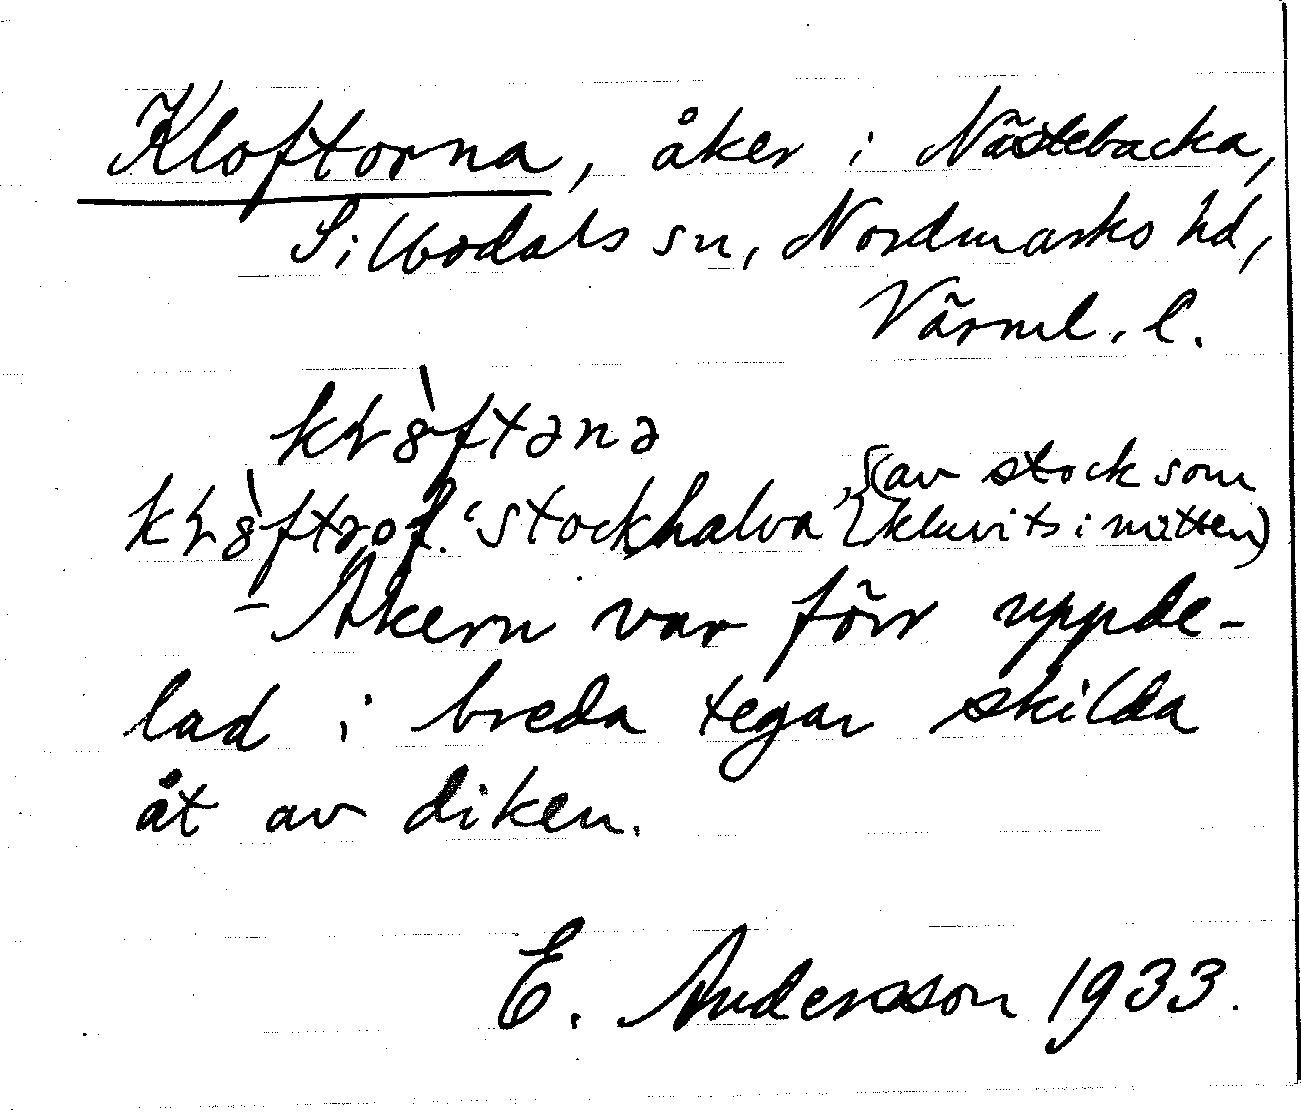 Kloftorna, åker i Nästebacka,
Silbodals sn, Nordmarks hd,
Värml. l.
kɽ8̀ftənə
kɽ8̀ftra f. ‘stockhalva’, (av stock som
kluvits i mitten)
– Åkern var förr uppde-
lad i breda tegar skilda
åt av diken.
E. Andersson 1933.